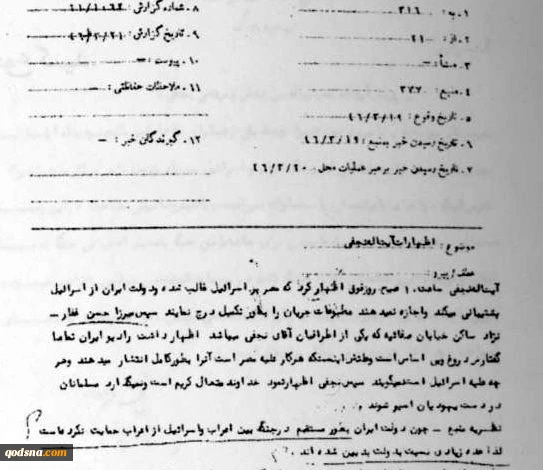 ۱. به : ۳۱۶
۸. شماره گزارش :
۲. از : ۲۱
۹. تاریخ گزارش : ۴۶/۳/۲۱
۳. منشأ : —
۱۰. پیوست : —
۴. منبع : ۳۷۷
۱۱. ملاحظات حفاظتی : —
۵. تاریخ وقوع : ۴۶/۳/۱۹
۶. تاریخ رسیدن خبر بمنبع : ۴۶/۳/۱۹
۱۲. گیرندگان خبر : —
۷. تاریخ رسیدن خبر برهبر عملیات محل : ۴۶/۳/۲۰
موضوع : اظهارات آیت‌اله نجفی
عطف / پیرو :
آیت‌اله نجفی ساعت ۱۰ صبح روز فوق اظهار کرد که مصر بر اسرائیل غالب شده و دولت ایران از اسرائیل
پشتیبانی میکند و اجازه نمیدهند مطبوعات جریان را بطور تکمیل درج نمایند سپس میرزا حسن غفار —
نژاد ساکن خیابان صفائیه که یکی از اطرافیان آقای نجفی میباشد اظهار داشت رادیو ایران تماما
گفتارش دروغ و بی اساس است و علتش اینستکه هر کار علیه مصر است آنرا بطور کامل انتشار میدهند و هر
چه علیه اسرائیل است نمیگویند سپس نجفی اظهار نمود خداوند متعال کریم است و نمیگذارد مسلمانان
در دست یهودیان اسیر شوند
نظریه منبع — چون دولت ایران بطور مستقیم در جنگ بین اعراب و اسرائیل از اعراب حمایت نکرده است
لذا عده زیادی نسبت بدولت بدبین شده اند
qodsna.com